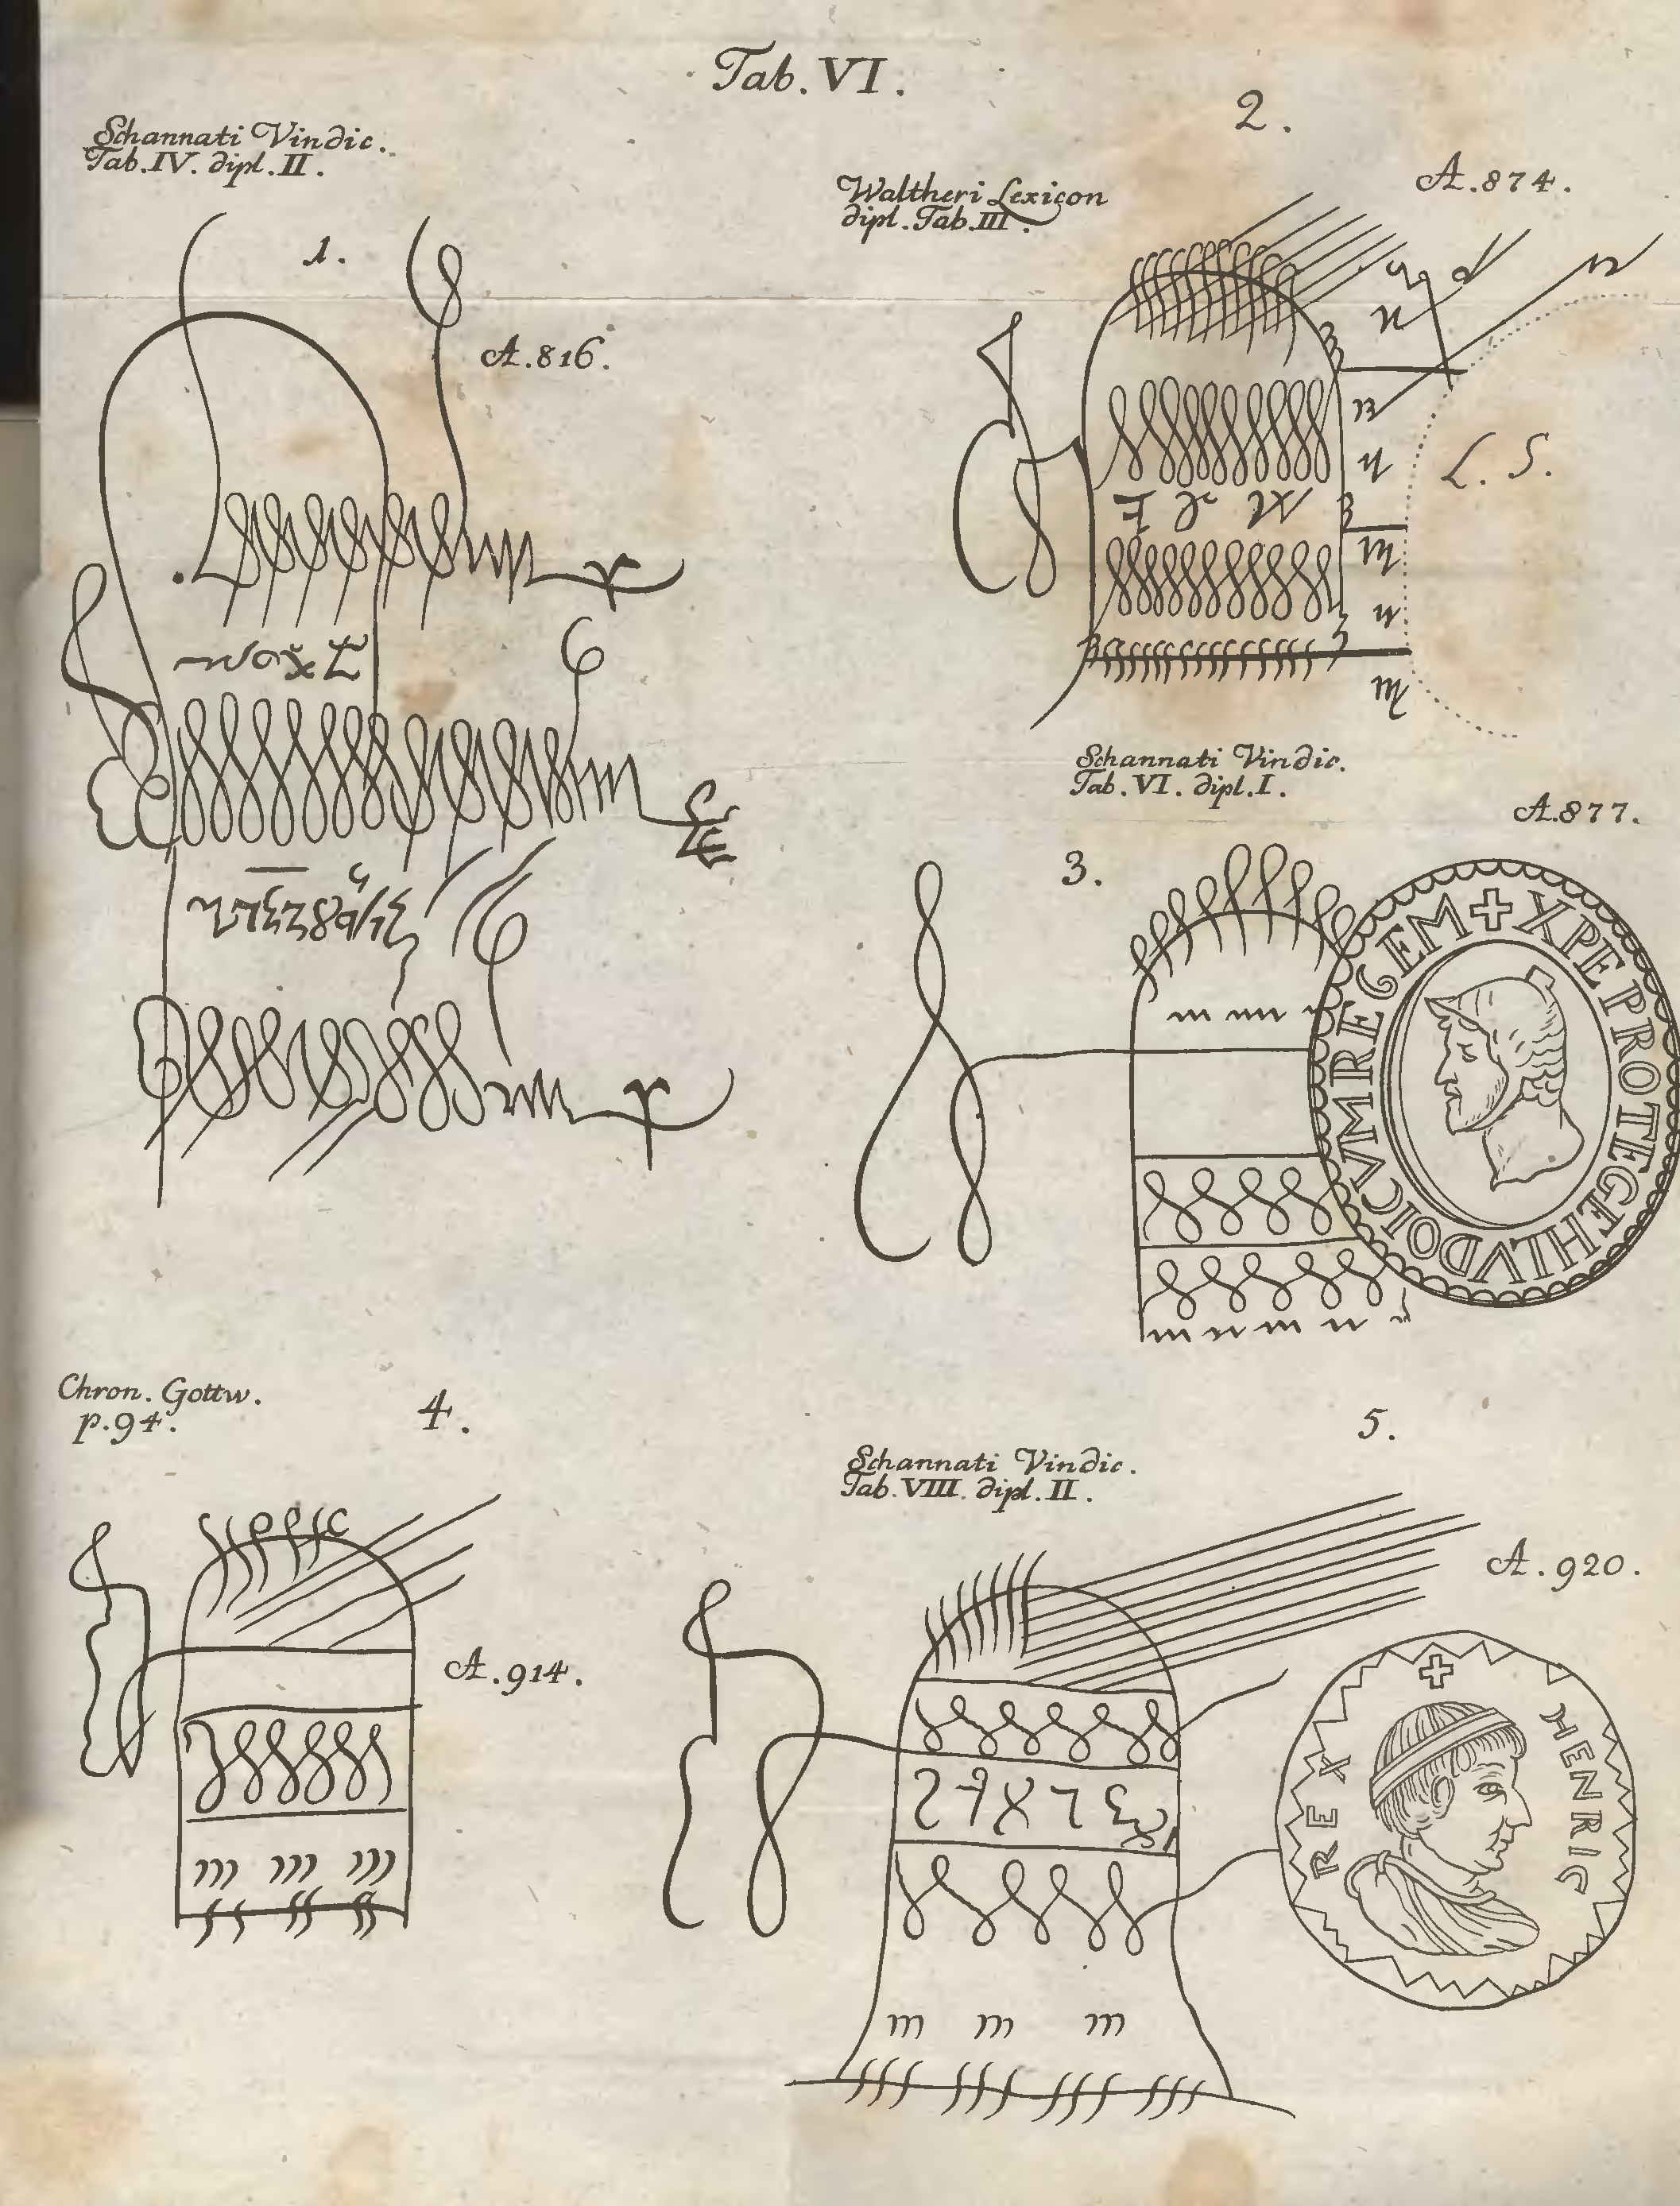 Tab. VI.
Schannati Vindic.
Tab. IV. dipl. II.
1.
A. 816.
2.
Waltheri Lexicon
dipl. Tab. III.
A. 874.
L. S.
Schannati Vindic.
Tab. VI. dipl. I.
A. 877.
3.
✚ XPE PROTEGE HLVDOICVM REGEM
Chron. Gottw.
p. 94.
4.
A. 914.
5.
Schannati Vindic.
Tab. VIII. dipl. II.
A. 920.
✚ HENRIC
REX